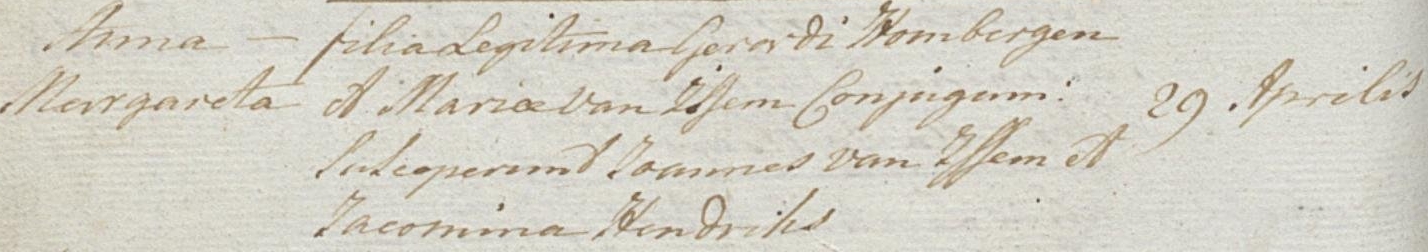 Anna — filia Legitima Gerardi Hombergen
Margareta et Mariæ van Issem Conjugum: 29 Aprilis
Susceperunt Joannes van Issem et
Jacomina Hendriks